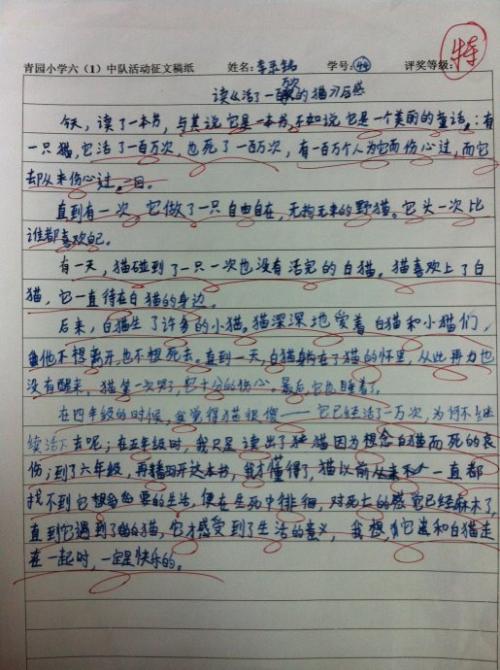 特
青园小学六（1）中队活动征文稿纸 姓名: 学号:44 评奖等级:
读《活了一百万次的猫》有感
今天，读了一本书，与其说它是一本书，不如说它是一个美丽的童话。：有
一只猫，它活了一百万次，也死了一百万次，有一百万个人为它而伤心过，而它
却从来伤心过。一回。
直到有一次，它做了一只自由自在，无拘无束的野猫。它头一次比
谁都喜欢自己。
有一天，猫碰到了一只一次也没有活完的白猫。猫喜欢上了白
猫，它一直待在白猫的身边。
后来，白猫生了许多的小猫。猫深深地爱着白猫和小猫们，
他不想离开，也不想死去。直到一天，白猫躺在了猫的怀里，从此再力也
没有醒来，猫第一次哭了，它十分的伤心。最后它也睡着了。
在四年级的时候，我觉得猫很傻——它已经活了一万次，为何不继
续活下去呢；在五年级时，我只是读出了猫因为想念白猫而死的哀
伤；到了六年级，再翻开这本书，我才懂得了，猫以前从来一直都
找不到它想要的生活，便在生死中徘徊，对死亡的感官已经麻木了，
直到它遇到了白猫，它才感受到了生活的意义，我想，当它和白猫走
在一起时，一定是快乐的。